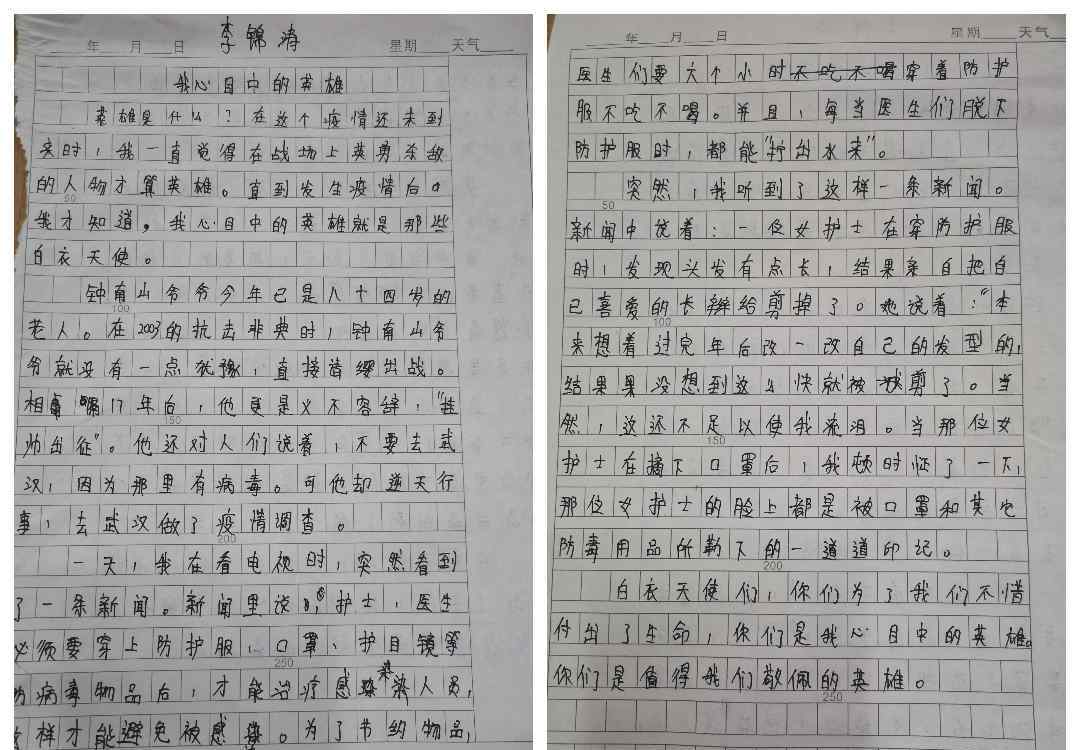 李锦涛
年 月 日 星期 天气
我心目中的英雄
英雄是什么？在这个疫情还未到
来时，我一直觉得在战场上英勇杀敌
的人物才算英雄。直到发生疫情后。
我才知道。我心目中的英雄就是那些
白衣天使。
钟南山爷爷今年已是八十四岁的
老人。在2003的抗击非典时，钟南山爷
爷就没有一点犹豫，直接请缨出战。
相隔17年后，他更是义不容辞，"挂
帅出征"。他还对人们说着，不要去武
汉，因为那里有病毒。可他却逆天行
事，去武汉做了疫情调查。
一天，我在看电视时，突然看到
了一条新闻。新闻里说，护士，医生
必须要穿上防护服、口罩、护目镜等
防病毒物品后，才能治疗感染人员，
这样才能避免被感染。为了节约物品，
年 月 日 星期 天气
医生们要六个小时不吃不喝穿着防护
服不吃不喝。并且，每当医生们脱下
防护服时，都能"拧出水来"。
突然，我听到了这样一条新闻。
新闻中说着：一位女护士在穿防护服
时，发现头发有点长，结果亲自把自
己喜爱的长辫给剪掉了。她说着："本
来想着过完年后改一改自己的发型的，
结果果没想到这么快就被剪了。当
然，这还不足以使我流泪。当那位女
护士在摘下口罩后，我顿时怔了一下，
那位女护士的脸上都是被口罩和其它
防毒用品所勒下的一道道印记。
白衣天使们，你们为了我们不惜
付出了生命，你们是我心目中的英雄。
你们是值得我们敬佩的英雄。
50
100
150
200
250
50
100
150
200
250